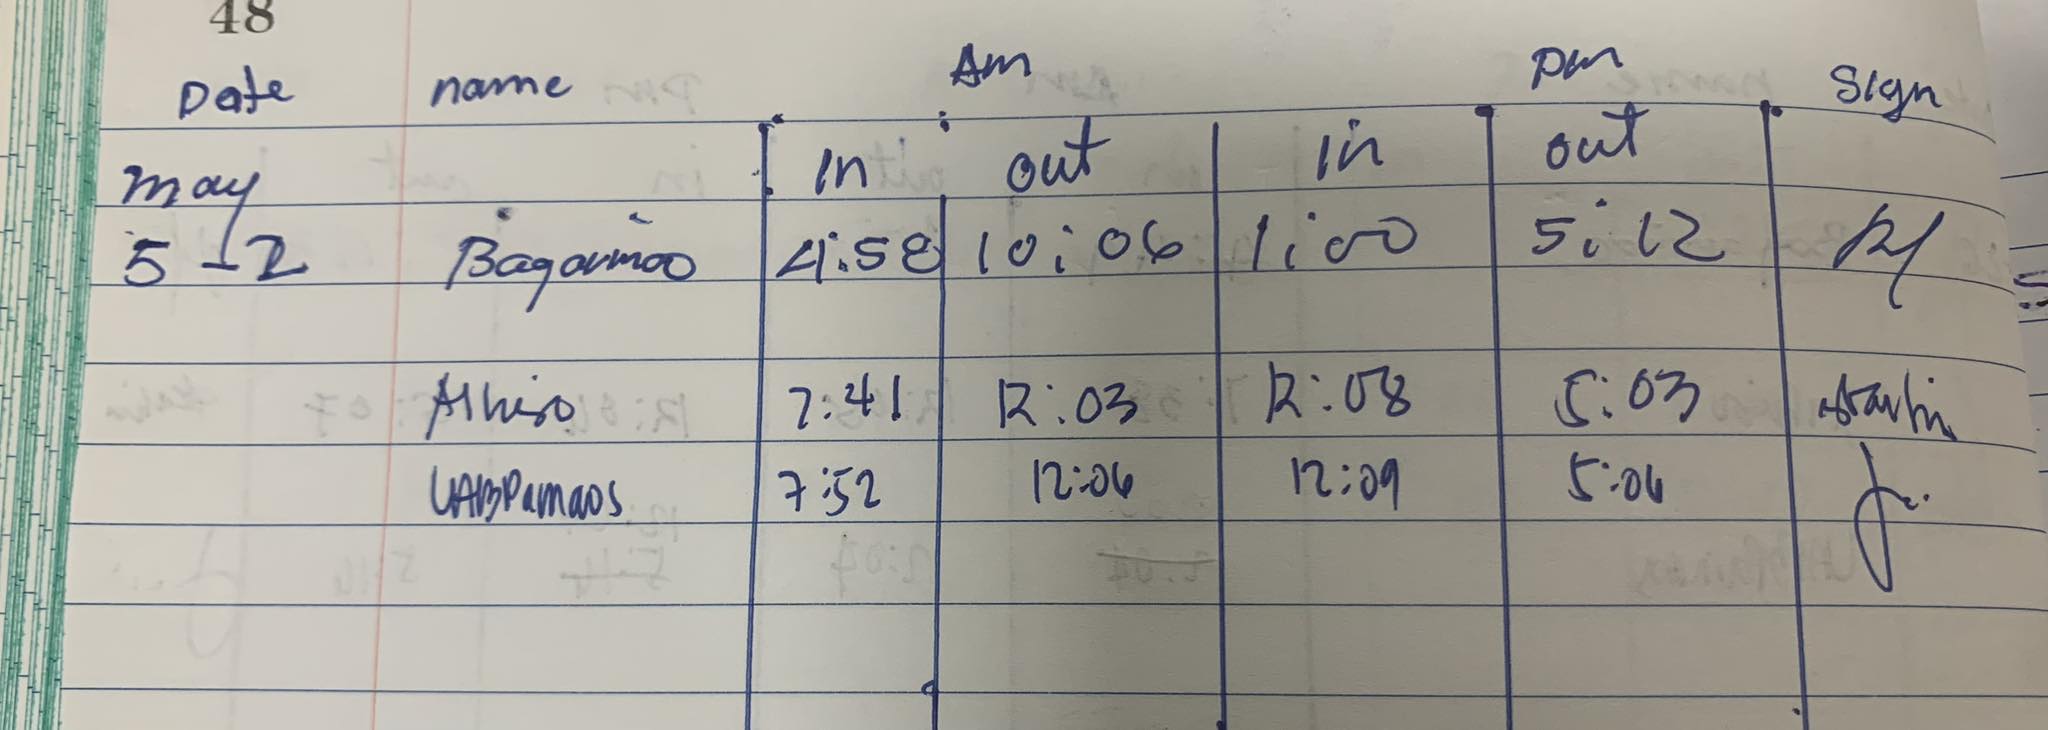 48
Date name Am pm Sign
May In out in out
5-2 Bagarinao 4:58 10:06 1:00 5:12
Alhiso 7:41 12:03 12:08 5:03
LABPamaos 7:52 12:06 12:09 5:06